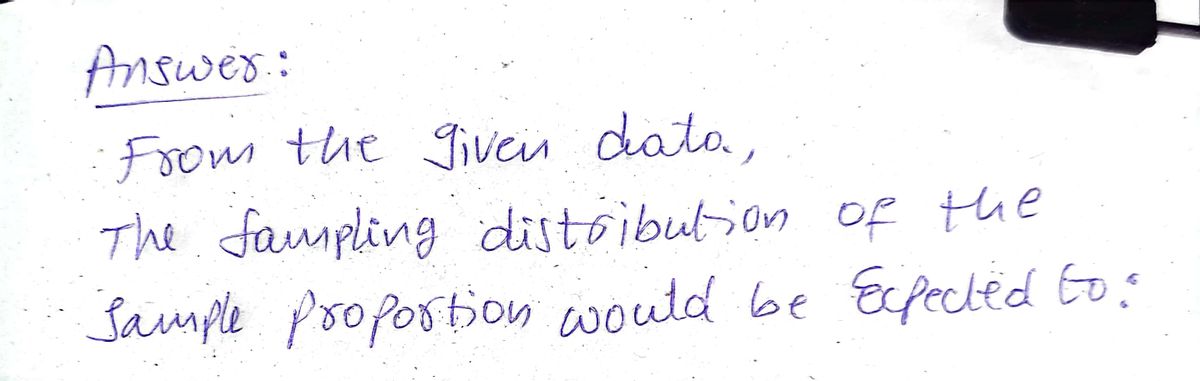 Answer:
From the given data,
The Sampling distribution of the
Sample proportion would be Expected to: